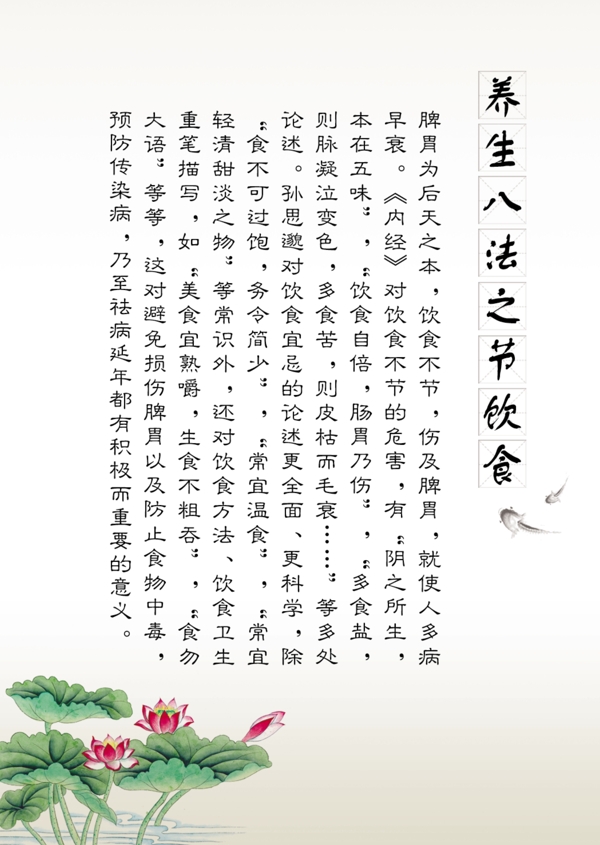 养生八法之节饮食
脾胃为后天之本，饮食不节，伤及脾胃，就使人多病
早衰。《内经》对饮食不节的危害，有“阴之所生，
本在五味”，“饮食自倍，肠胃乃伤”，“多食盐，
则脉凝泣变色，多食苦，则皮枯而毛衰……”等多处
论述。孙思邈对饮食宜忌的论述更全面、更科学，除
“食不可过饱，务令简少”，“常宜温食”，“常宜
轻清甜淡之物”等常识外，还对饮食方法、饮食卫生
重笔描写，如“美食宜熟嚼，生食不粗吞”，“食勿
大语”等等，这对避免损伤脾胃以及防止食物中毒，
预防传染病，乃至祛病延年都有积极而重要的意义。